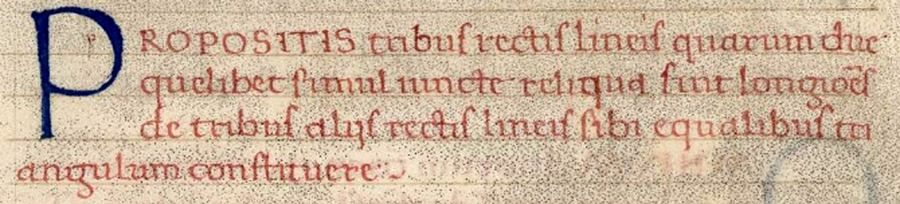 PROPOSITIS tribuſ rectiſ lineiſ quarum due
quelibet ſimul iuncte reliqua ſint longiōeſ
de tribuſ alijſ rectiſ lineiſ ſibi equalibuſ tri
angulum conſtituere